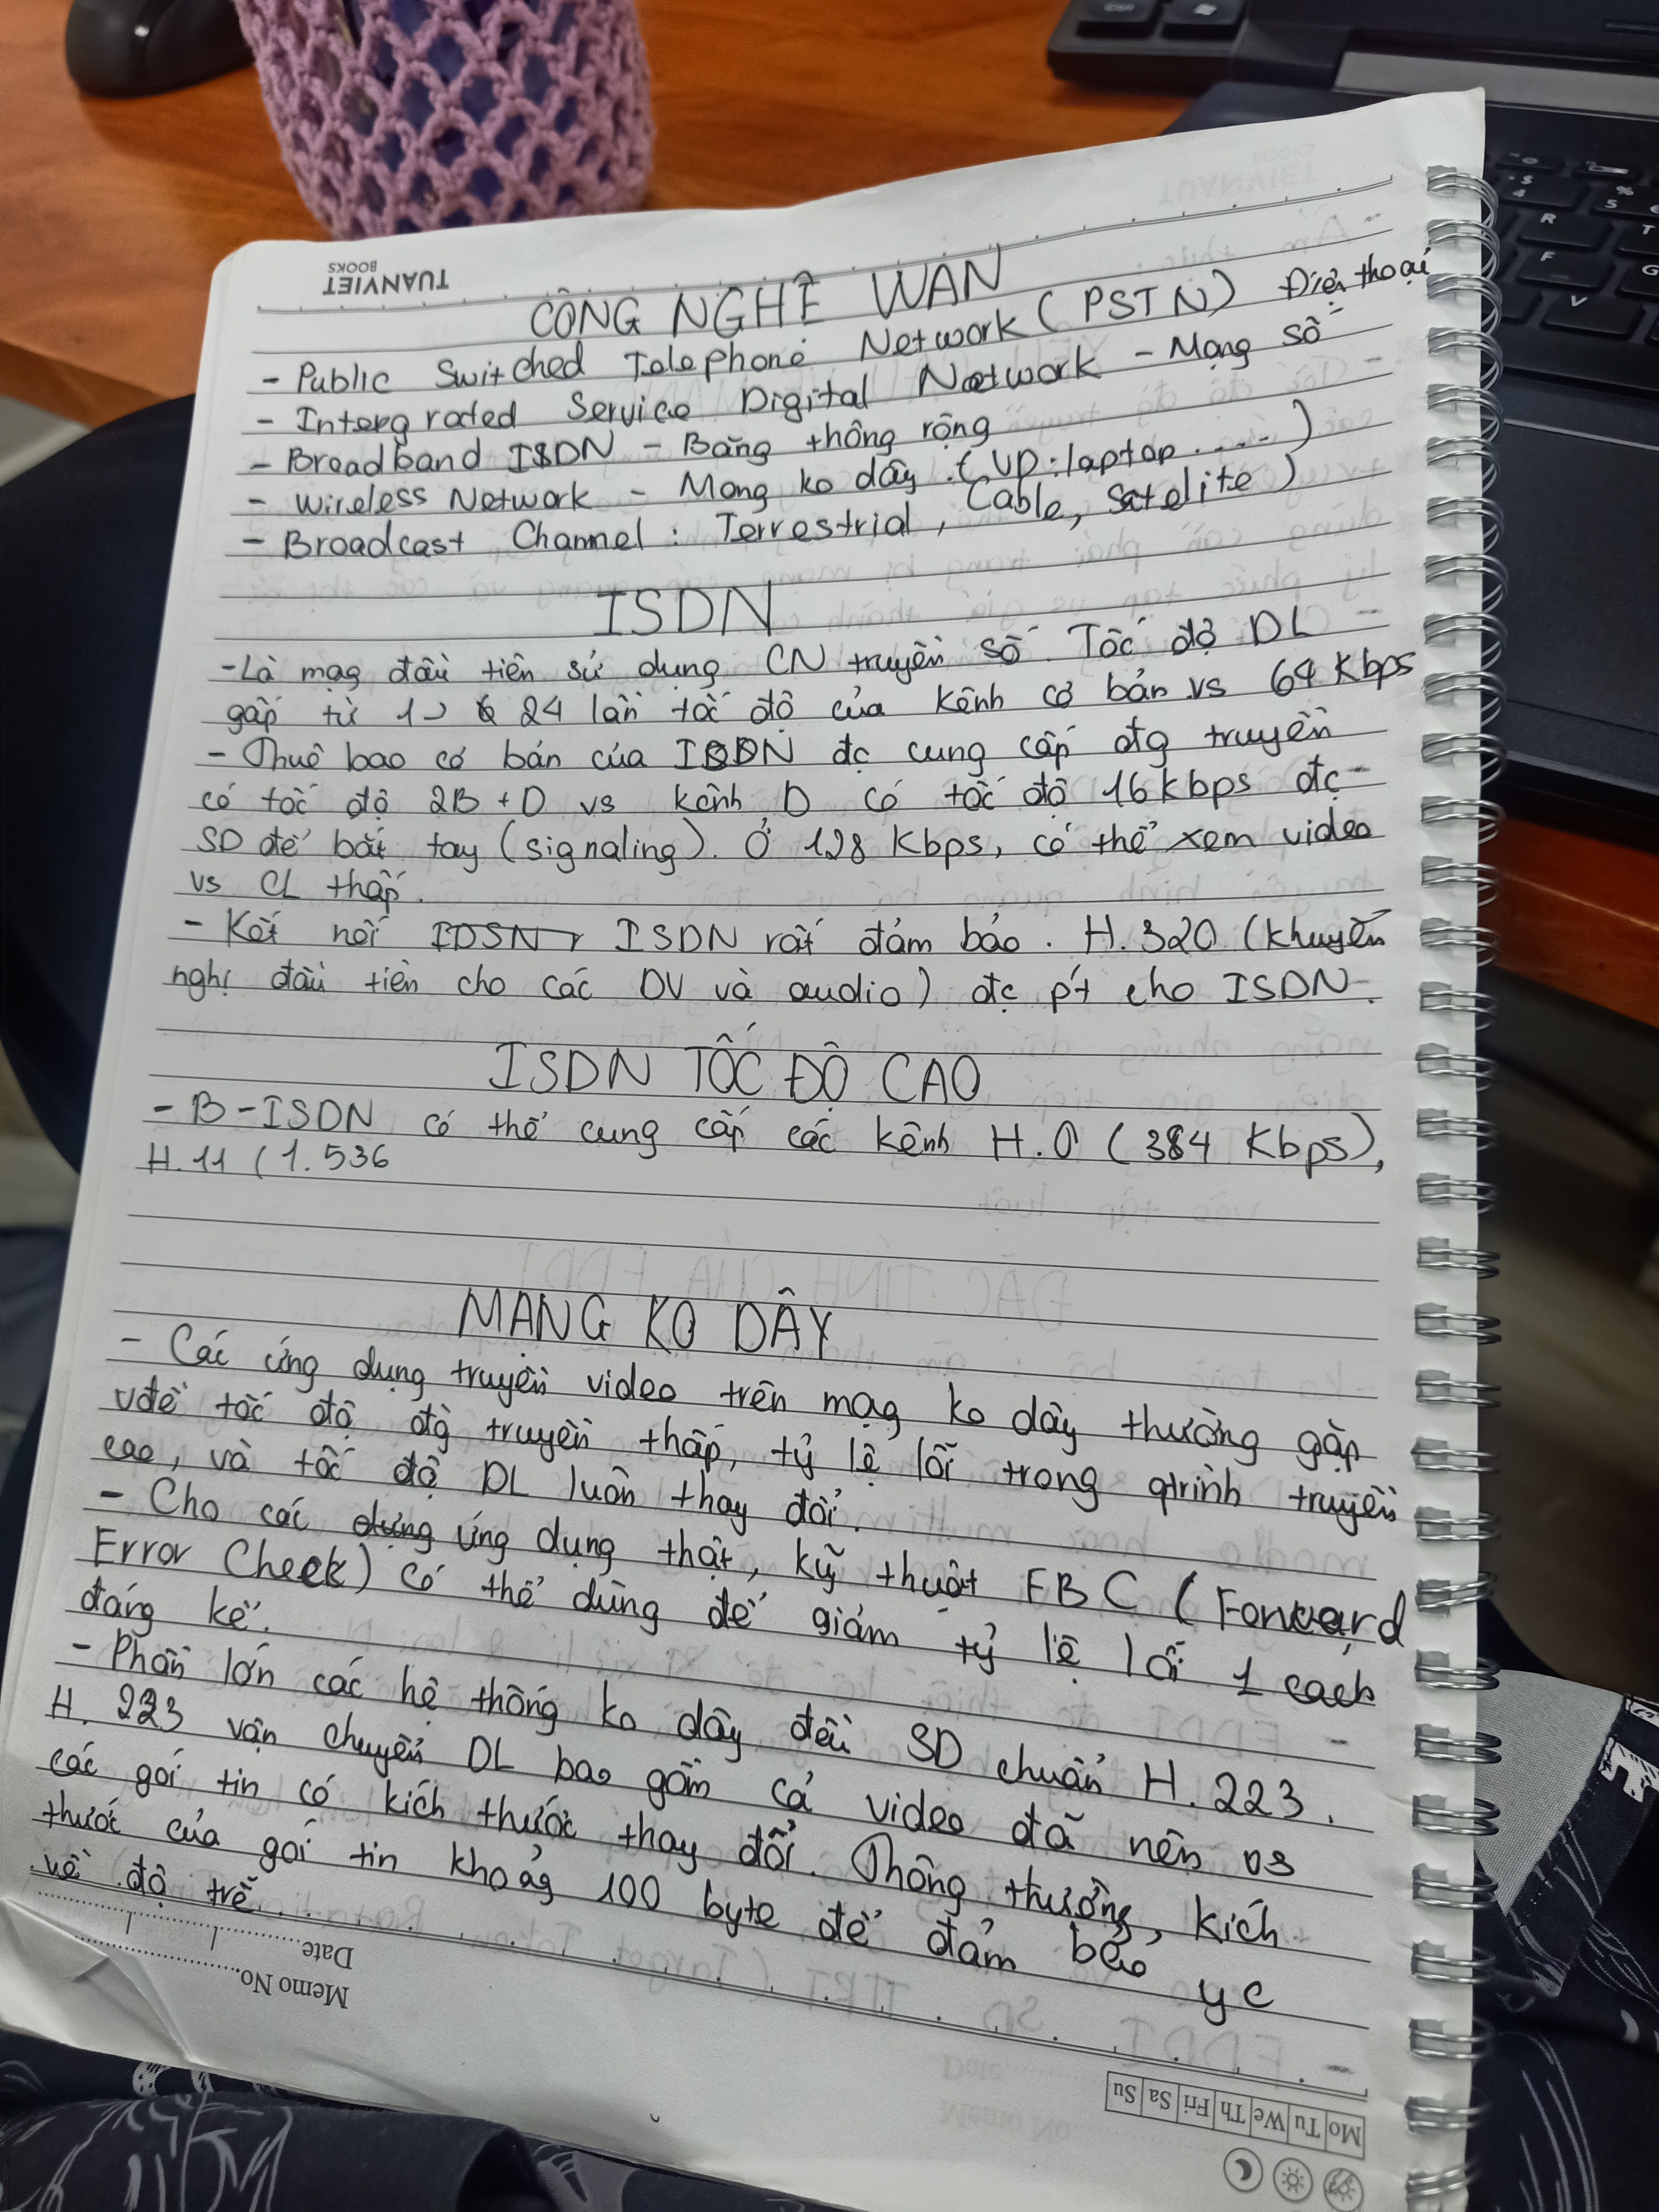 TUANVIET
BOOKS
CÔNG NGHỆ WAN
- Public Switched Telephone Network (PSTN) Điện thoại
- Intergrated Service Digital Network - Mạng số
- Broadband ISDN - Băng thông rộng
- Wireless Network - Mạng ko dây. (VD: laptop....)
- Broadcast Channel : Terrestrial, Cable, Satelite)
ISDN
- Là mạg đầu tiên sử dụng CN truyền số. Tốc độ DL
gấp từ 1-> 24 lần tốc độ của kênh cơ bản vs 64 Kbps
- Thuê bao cơ bản của ISDN đc cung cấp đg truyền
có tốc độ 2B + D vs kênh D có tốc độ 16 kbps đc
SD để bắt tay (signaling). Ở 128 Kbps, có thể xem video
vs CL thấp.
- Kết nối IDSN ISDN rất đảm bảo. H.320 (khuyến
nghị đầu tiên cho các DV và audio) đc pt cho ISDN.
ISDN TỐC ĐỘ CAO
- B-ISDN có thể cung cấp các kênh H.0 (384 Kbps),
H.11 (1.536
MẠNG KO DÂY
- Các ứng dụng truyền video trên mạg ko dây thường gặp
vđề tốc độ đg truyền thấp, tỷ lệ lỗi trong qtrình truyền
cao, và tốc độ DL luôn thay đổi.
- Cho các dụng ứng dụng thật, kỹ thuật FBC (Forward
Error Check) có thể dùng để giảm tỷ lệ lỗi 1 cách
đáng kể.
- Phần lớn các hệ thống ko dây đều SD chuẩn H.223.
H.223 vận chuyển DL bao gồm cả video đã nén vs
các gói tin có kích thước thay đổi. Thông thường, kích
thước của gói tin khoảg 100 byte để đảm bảo yc
về độ trễ.
Date
Memo No.
Mo Tu We Th Fri Sa Su